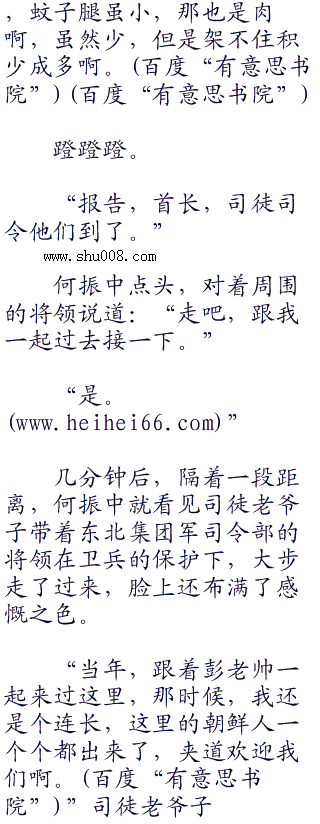 ，蚊子腿虽小，那也是肉
啊，虽然少，但是架不住积
少成多啊。(百度“有意思书
院”)(百度“有意思书院”)
蹬蹬蹬。
“报告，首长，司徒司
令他们到了。”
www.shu008.com
何振中点头，对着周围
的将领说道：“走吧，跟我
一起过去接一下。”
“是。
(www.heihei66.com)”
几分钟后，隔着一段距
离，何振中就看见司徒老爷
子带着东北集团军司令部的
将领在卫兵的保护下，大步
走了过来，脸上还布满了感
慨之色。
“当年，跟着彭老帅一
起来过这里，那时候，我还
是个连长，这里的朝鲜人一
个个都出来了，夹道欢迎我
们啊。(百度“有意思书
院”)”司徒老爷子